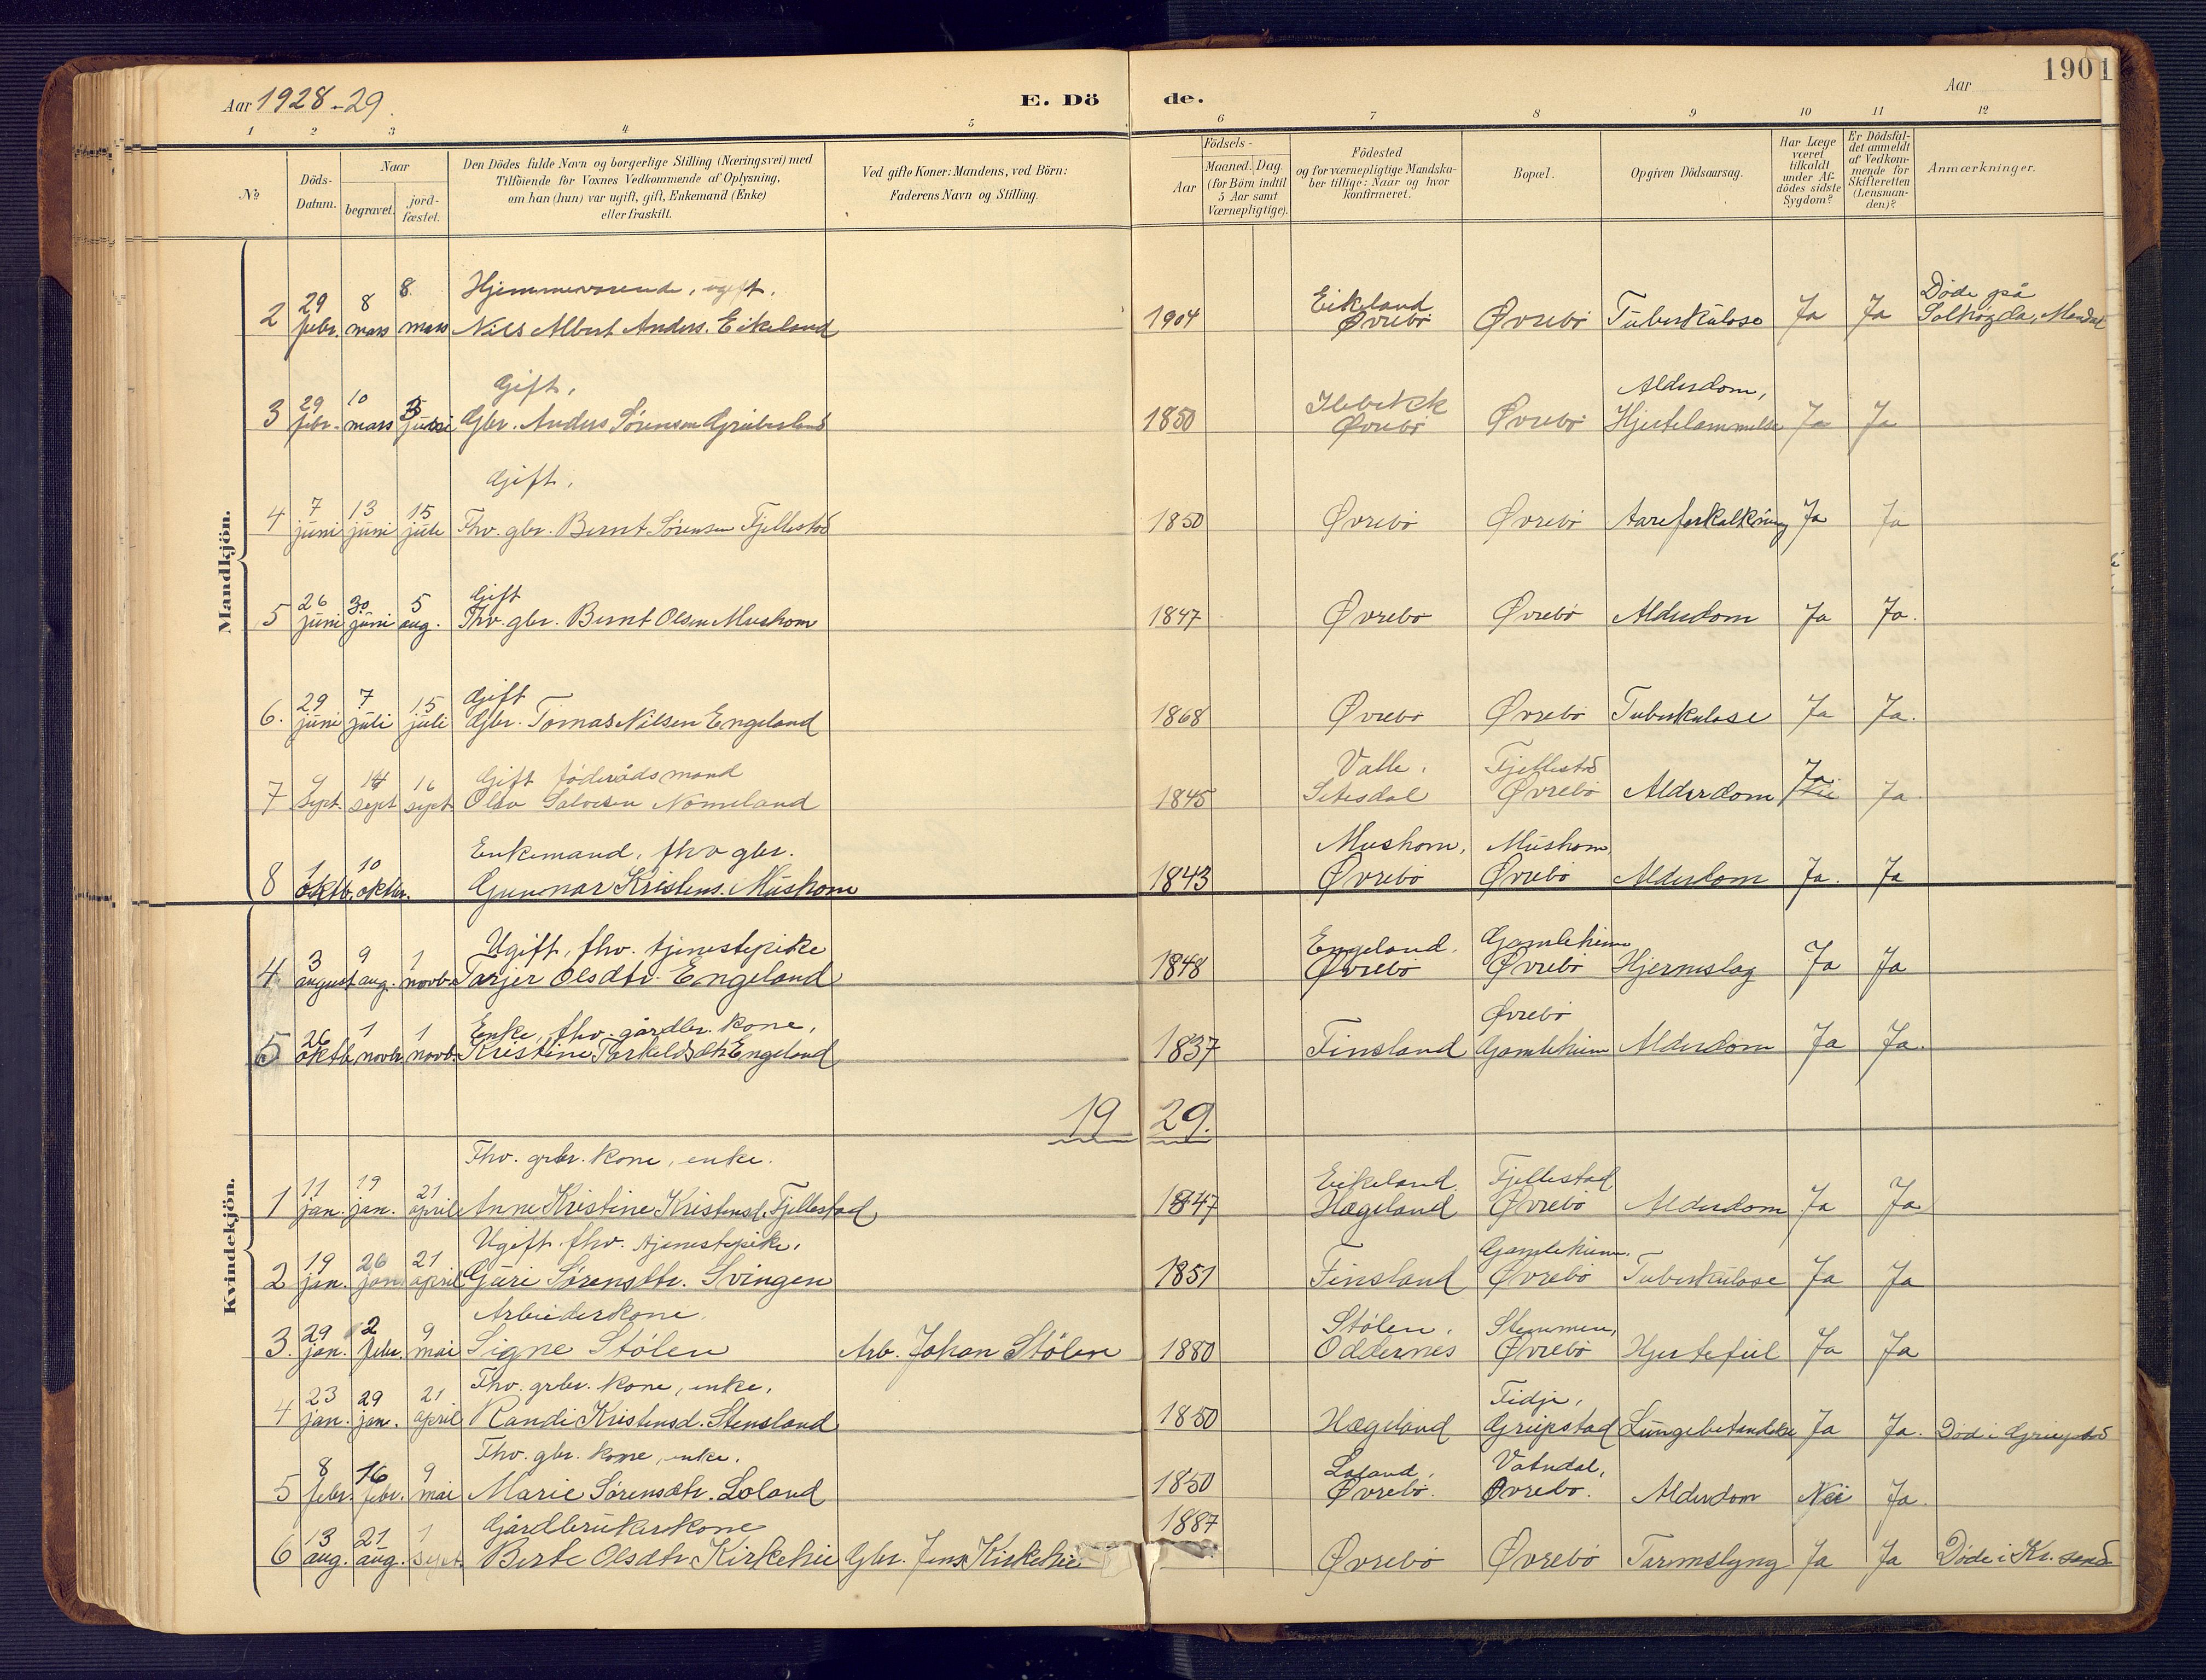 Aar 1928-29.
E. Dö
de.
Aar
1901
1 2 3 4 5 6 7 8 9 10 11 12
No
Döds-Datum.
Naar
begravet.
jord-fæstet.
Den Dödes fulde Navn og borgerlige Stilling (Næringsvei) med
Tilföiende for Voxnes Vedkommende af Oplysning,
om han (hun) var ugift, gift, Enkemand (Enke)
eller fraskilt.
Ved gifte Koner: Mandens, ved Börn:
Faderens Navn og Stilling.
Födsels-
Aar
Maaned. Dag.
(for Börn indtil
5 Aar samt
Værnepligtige).
Födested
og for værnepligtige Mandska-
ber tillige: Naar og hvor
konfirmeret.
Bopæl.
Opgiven Dödsaarsag.
Har Læge
været
tilkaldt
under Af-
dödes sidste
Sygdom?
Er Dödsfal-
det anmeldt
af Vedkom-
mende for
Skifteretten
(Lensman-
den)?
Anmærkninger.
Mandkjön.
8. Hjemmeværende, ugift. Døde på
29 8 Eikeland
2 febr. mars mars Nils Albert Anders. Eikeland 1904 Øvrebö Øvrebö Tuberkulose Ja Ja Solhøgda, Mandal
Gift, Alderdom,
29 10
3 febr. mars Gbr. Anders Sørensen 1850 Øvrebö Øvrebö Hjertelammelse Ja Ja
Gift,
7 13 15
4 juni juni juli Fhv. gbr. Bernt Sørensen Fjellestad 1850 Øvrebö Øvrebö Aareforkalkning Ja Ja
26 30 5 Gift
5 juni juni aug. Fhv. gbr. Bernt Olsen Mushom 1847 Øvrebö Øvrebö Alderdom Ja Ja.
29 7 15 Gift
6. juni juli juli Gbr. Tomas Nilsen Engeland 1868 Øvrebö Øvrebö Tuberkulose Ja Ja.
14 16 Gift föderådsmand Valle, Fjellestad Ja.
7 Sept. sept sept. Olav Salvesen Nomeland 1845 Setesdal Øvrebö Alderdom Ja.
1 10 Enkemand, fhv gbr. Mushom, Mushom,
8 oktb. oktbr. Gunnar Kristens. Mushom 1843 Øvrebö Øvrebö Alderdom Ja. Ja
Kvindekjön.
3 9 1 Ugift, fhv. tjenestepike Engeland, Gamleheim
4 august aug. novb. Tarjer Olsdtr. Engeland 1848 Øvrebö Øvrebö Hjernslag Ja Ja
26 1 1 Enke, fhv. gårdbr. kone, Øvrebö
5 oktb. novb. novb. Kristine Tarkelds dtr Engeland 1837 Finsland Gamleheim Alderdom Ja Ja.
19 29.
Fhv. grbr. kone, enke.
11 19 21 Eikeland, Fjellestad
1 jan. jan. april Anne Kristine Kristensd. Fjellestad 1847 Hægeland Øvrebö Alderdom Ja Ja
19 26 21 Ugift. fhv. tjenestepike, Gamleheim.
2 jan. jan. april Guri Sørensdtr. Svingen 1851 Finsland Øvrebö Tuberkulose Ja Ja
29 2 9 Arbeiderkone. Stölen, Stemmen,
3. jan. febr. mai Signe Stölen Arb. Johan Stölen 1880 Oddernes Øvrebö Hjertefeil Ja Ja
23 29 21 Fhv. grbr. kone, enke, Tidje,
4 jan. jan. april Randi Kristensd. Stensland 1850 Hægeland Greipstad Lungebetændelse Ja Ja. Död i Greipstad
8 16 9 Fhv. gbr. kone, enke. Loland, Vatndal,
5 febr. febr. mai Marie Sørensdtr. Loland 1850 Øvrebö. Øvrebö. Alderdom Nei Ja.
13 21 1 Gårdbrukerkone 1887
6 aug. aug. sept. Berte Olsdtr. Kirkehei Gbr. Jens Kirkehei Øvrebö Øvrebö Tarmslyng Ja Ja Döde i Kr. sand